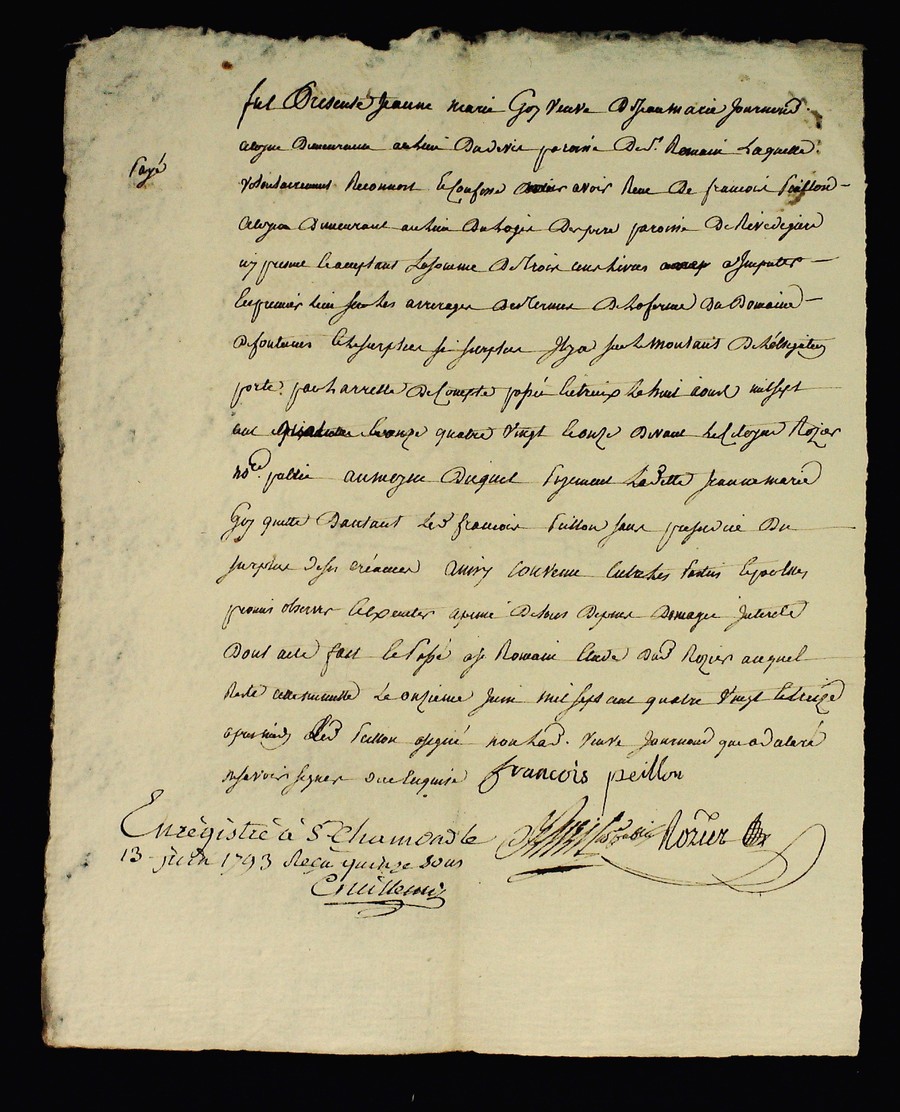 fut Presente Jeanne marie Goy Veuve De Jean marie Journoud
citoyne Demeurant au lieu Du paroisse De St. Romain
payé
Volontairement Reconnoit & Confesse avoir Recu De francois peillon
citoyen Demeurant au lieu Du paroisse De
icy present & acceptant La somme De trois cens livres a Imputer
En premier lieu sur Les arrerages Des termes De La ferme Du Domaine
De fontanes & Le surplus si surplus Il y a sur Le montant De Lobligation
porté par Larretté De Compte passé Entreux Le huit aout mil sept
cent quatre Vingt & onze Devant Le Citoyen Rozier
nore. public au moyen Duquel payement La de Jeanne marie
Goy quitte Dautant Led francois peillon sans prejudice Du
surplus De ses créances ainsy convenu Entre Les parties
promis observer & Executer a peine De tous Depens Domages Interets
Dont acte fait & passé a st Romain Etude Dud Rozier auquel
Reste cette minutte Le onzieme Juin mil sept cent quatre Vingt & treize
apres midy Led peillon a signé non lad. Veuve Journoud qui a declaré
ne savoir signer De ce Enquise francois peillon
Enregistré à St. Chamond le
13 juin 1793 Reçu quinze Sous
Rozier